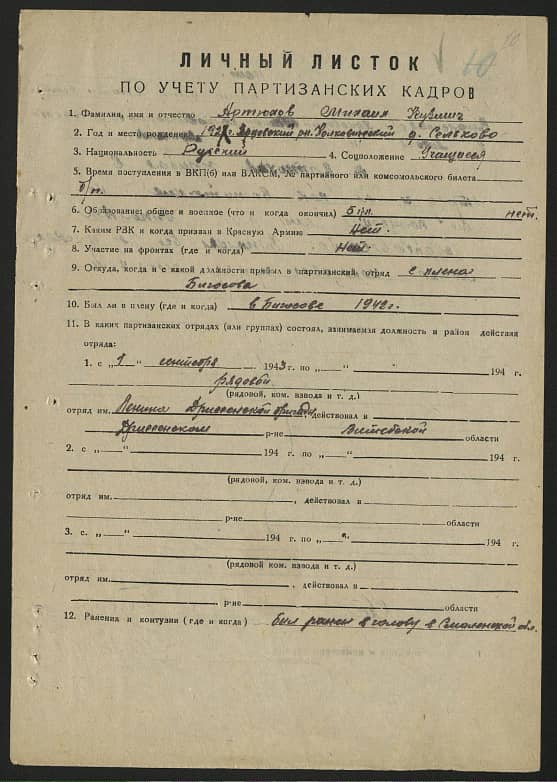 10
10
ЛИЧНЫЙ ЛИСТОК
ПО УЧЕТУ ПАРТИЗАНСКИХ КАДРОВ
1. Фамилия, имя и отчество Артюхов Михаил Кузмич
2. Год и место рождения 192 г. д. Сельково
3. Национальность Русский 4. Соцположение Учащийся
5. Время поступления в ВКП(б) или ВЛКСМ, № партийного или комсомольского билета
б/п.
6. Образование: общее и военное (что и когда окончил) 5 кл. нет.
7. Каким РВК и когда призван в Красную Армию Нет.
8. Участие на фронтах (где и когда) Нет.
9. Откуда, когда и с какой должности прибыл в партизанский отряд с плена
Бигосова
10. Был ли в плену (где и когда) в Бигосове 1942 г.
11. В каких партизанских отрядах (или группах) состоял, занимаемая должность и район действия
отряда:
1. с „1“ сентября 1943 г. по „ “ 194 г.
рядовой
(рядовой, ком. взвода и т. д.)
отряд им. Ленина Дриссенской бригады, действовал в
Дриссенском р-не Витебской области
2. с „ “ 194 г. по „ “ 194 г.
(рядовой, ком. взвода и т. д.)
отряд им. , действовал в
р-не области
3. с. „ “ 194 г. по „ “ 194 г.
(рядовой ком. взвода и т. д.)
отряд им. , действовал в
р-не области
12. Ранения и контузии (где и когда) был ранен в голову в Смоленской обл.